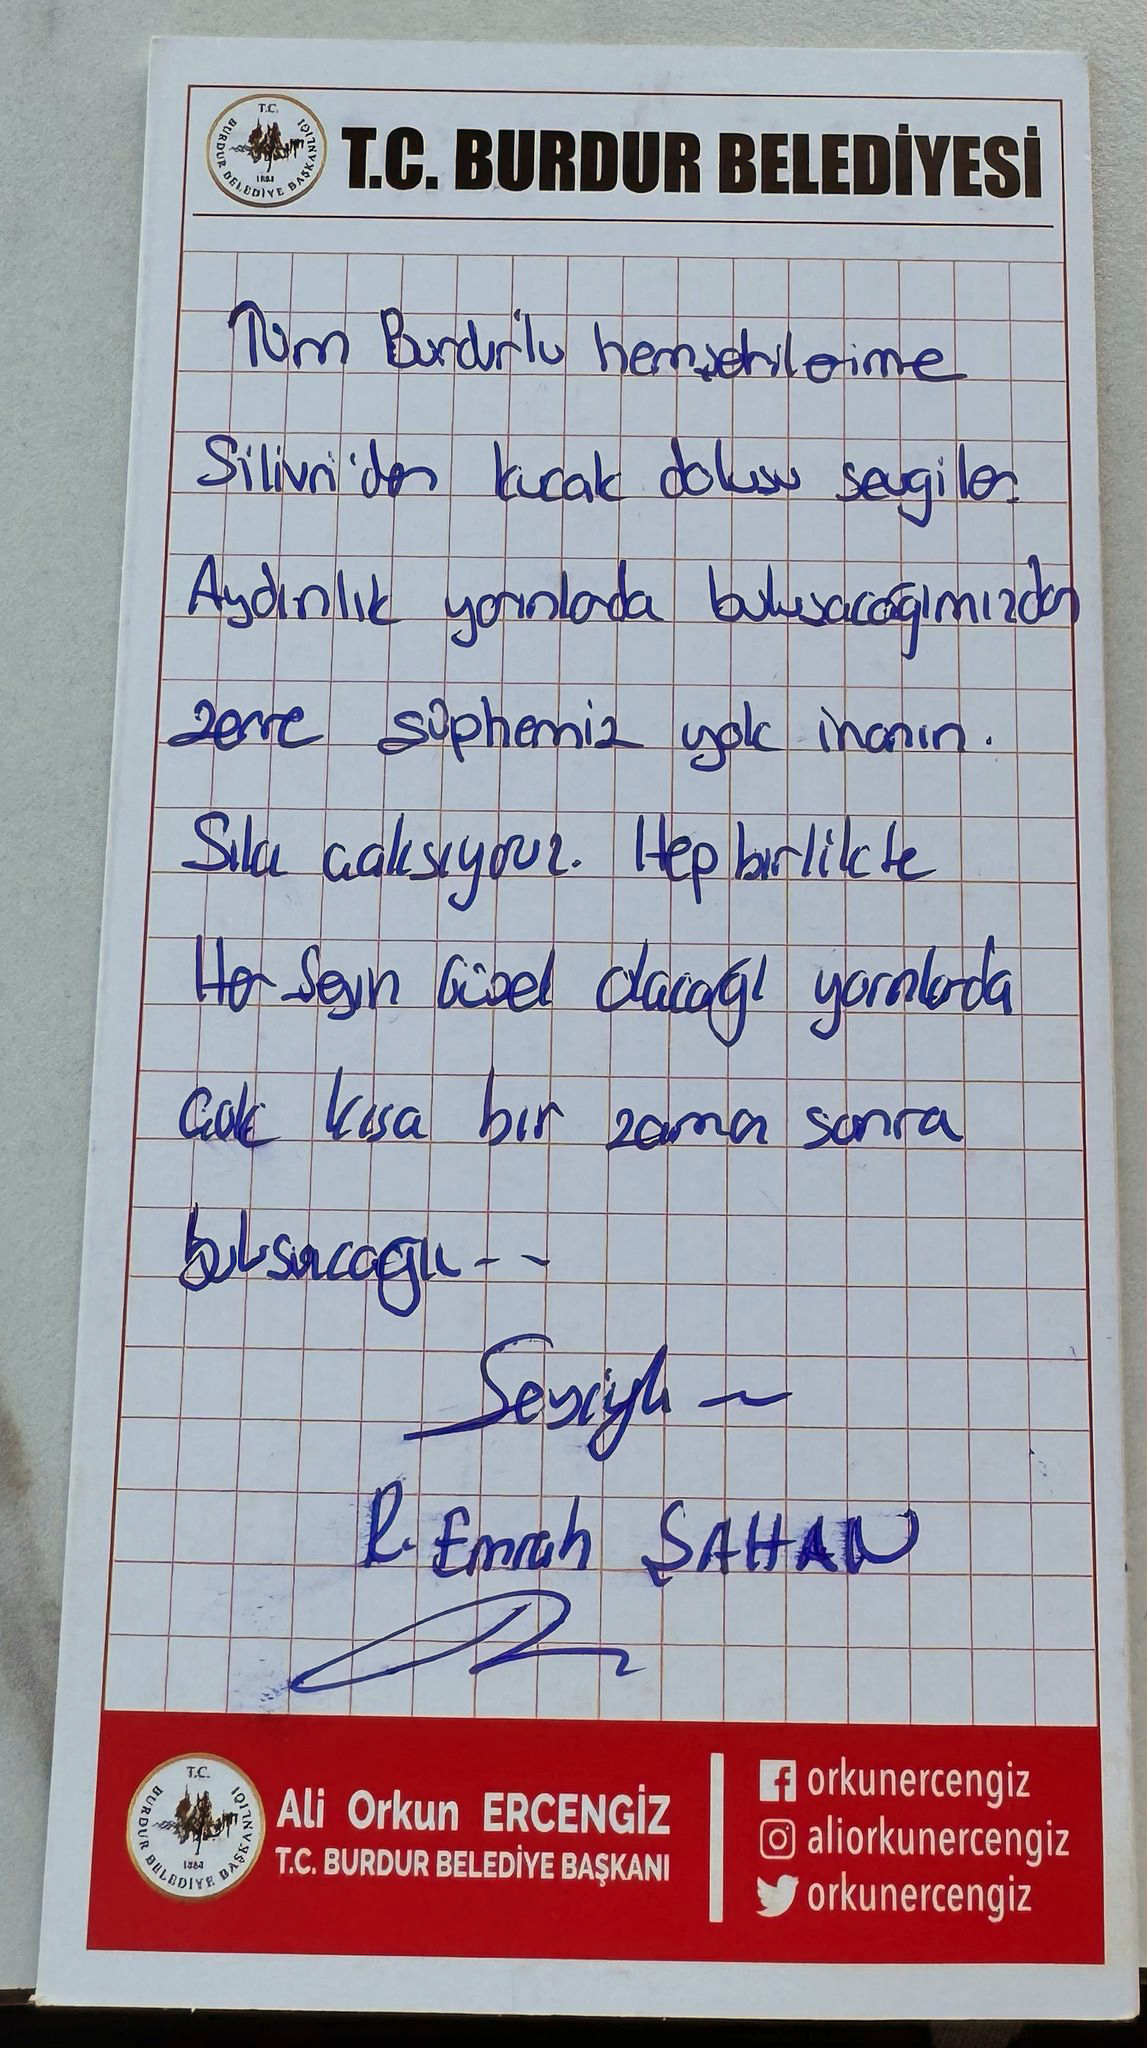 T.C.
BURDUR BELEDİYE BAŞKANLIĞI
T.C. BURDUR BELEDİYESİ
Tüm Burdur'lu hemşehrilerime
Silivri'den kucak dolusu sevgiler.
Aydınlık yarınlarda buluşacağımızdan
zerre şüphemiz yok inanın.
Sıkı çalışıyoruz. Hep birlikte
Her Şeyin Güzel olacağı yarınlarda
çok kısa bir zaman sonra
buluşacağız--
Sevgiyle
R. Emrah ŞAHAN
T.C.
BURDUR BELEDİYE BAŞKANLIĞI
Ali Orkun ERCENGİZ
T.C. BURDUR BELEDİYE BAŞKANI
orkunercengiz
aliorkunercengiz
orkunercengiz